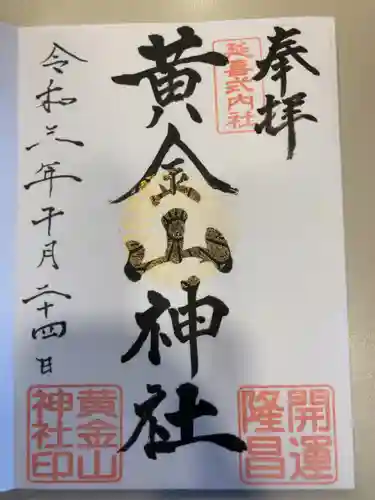 奉拝
延喜式内社
黄金山神社
開運
隆昌
黄金山
神社印
令和六年十月二十四日